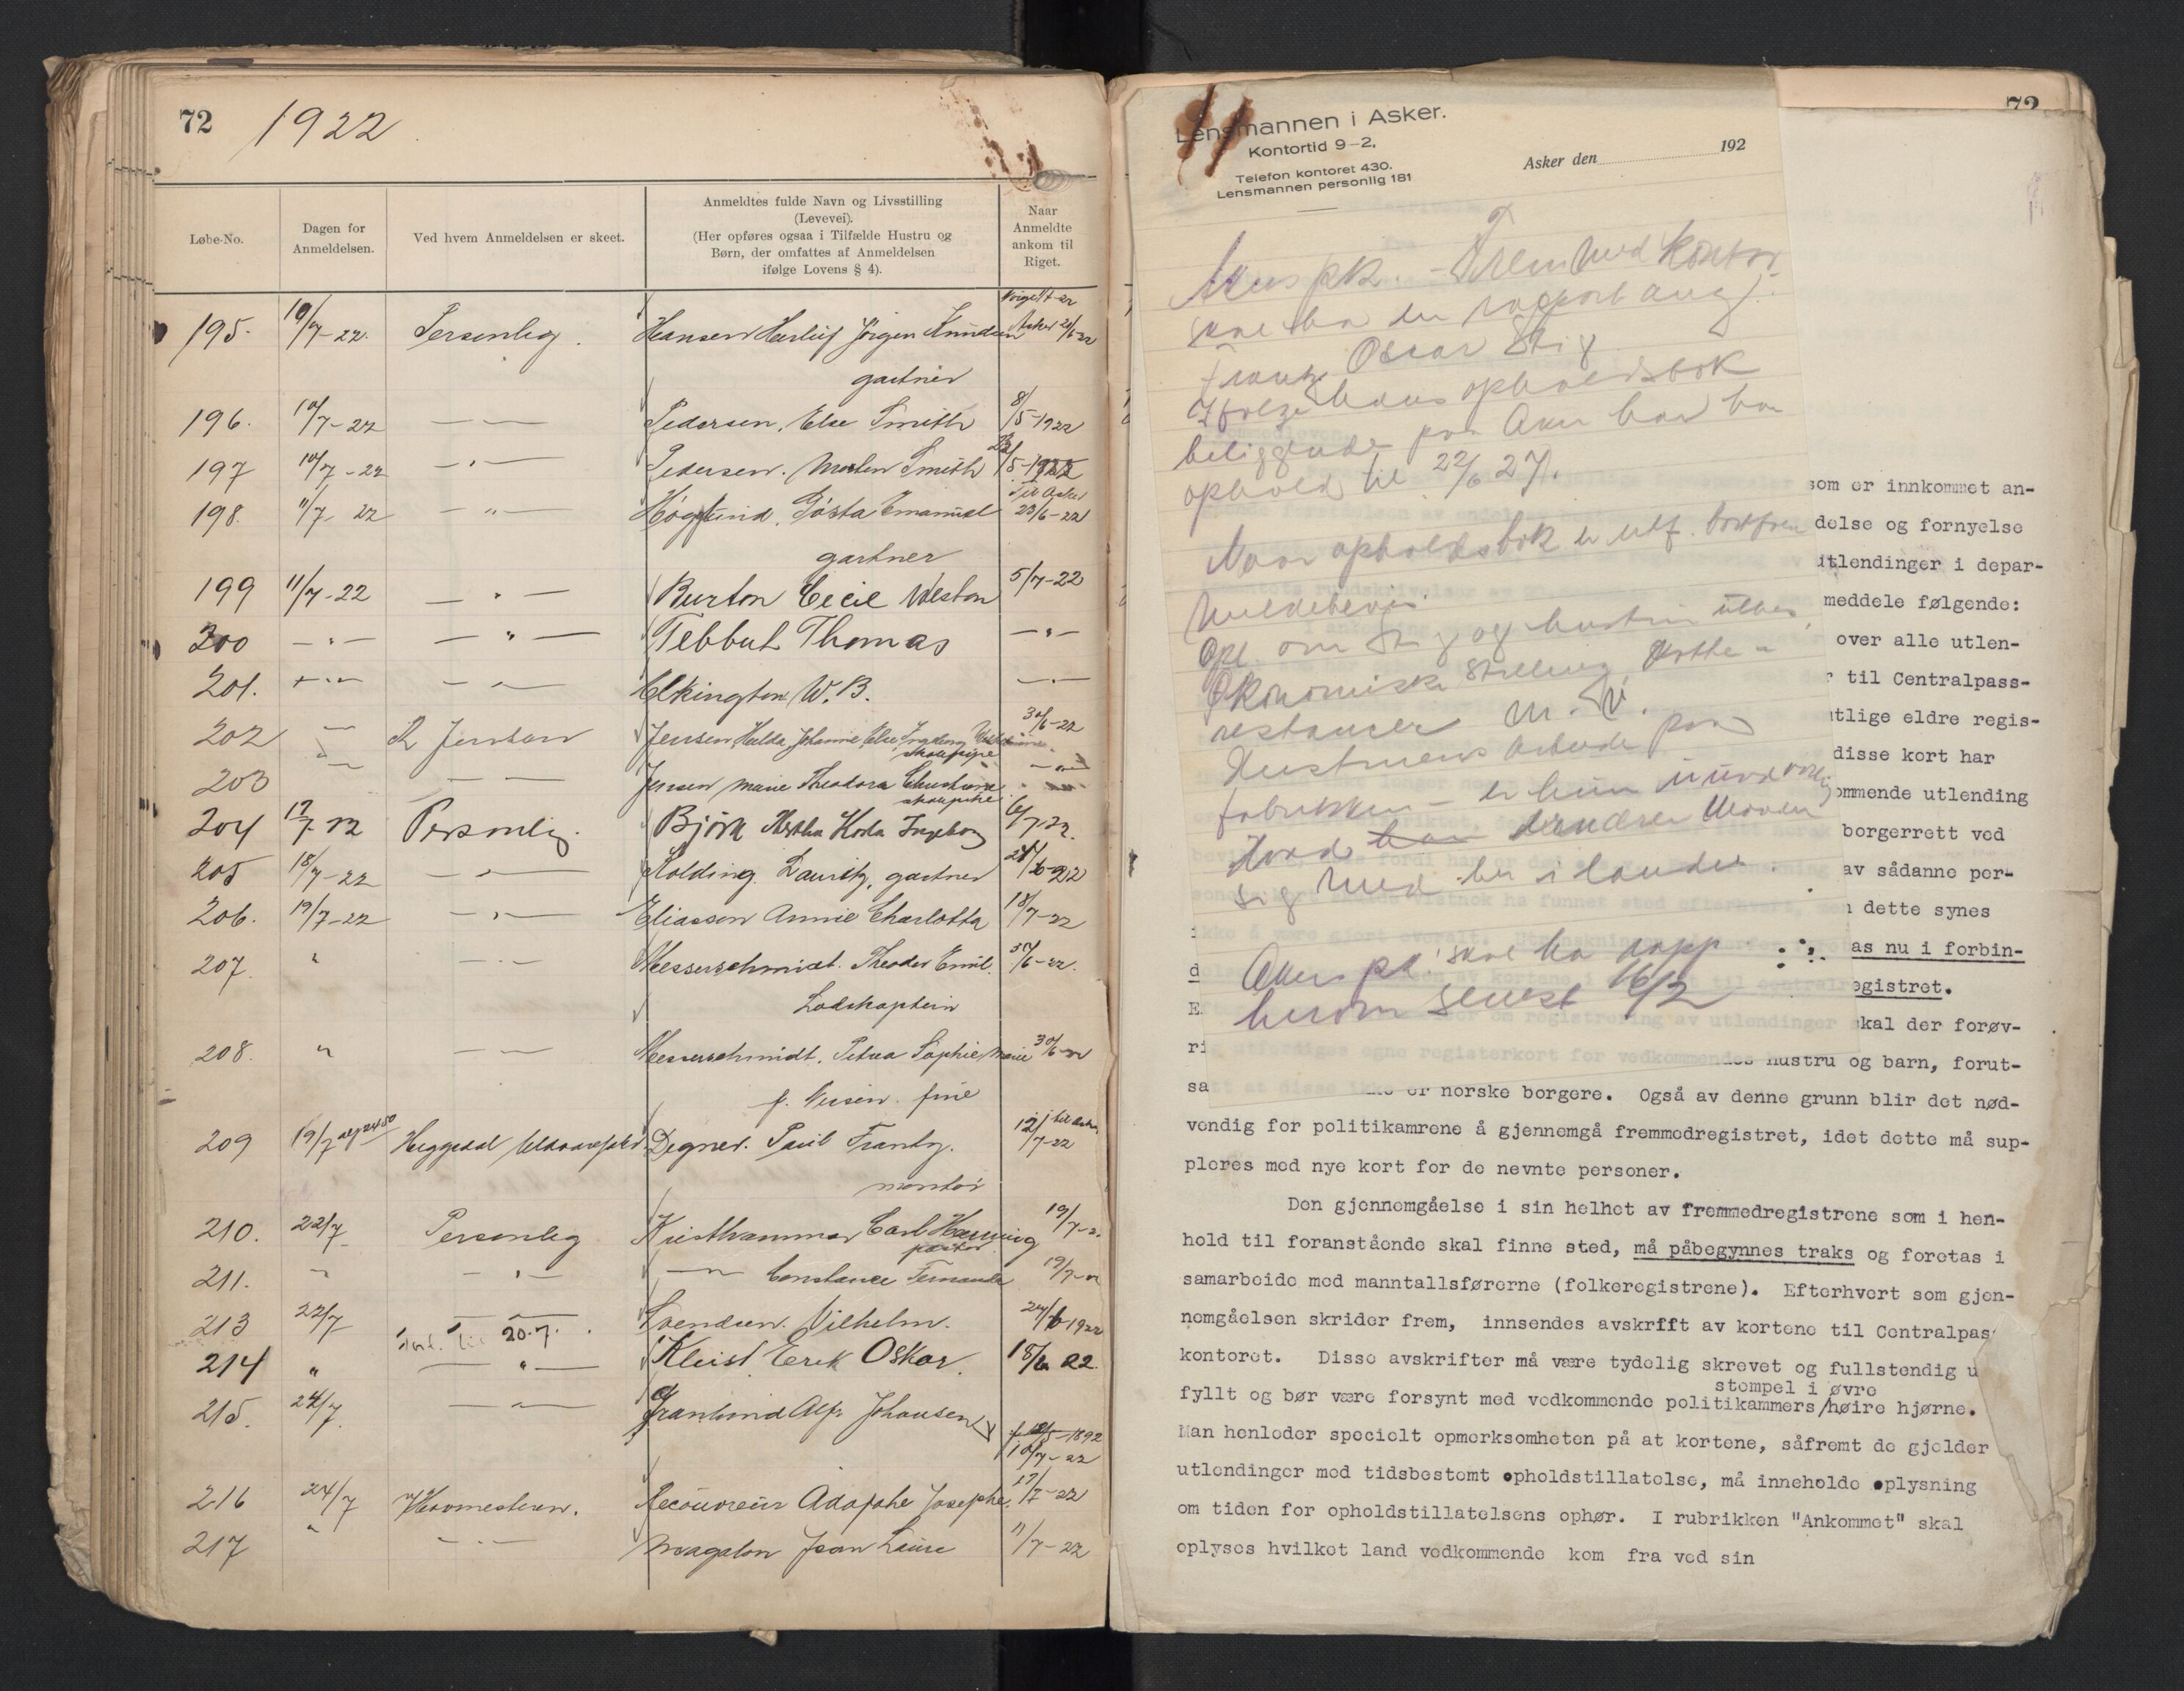 72 1922
Løbe-No.
Dagen for
Anmeldelsen.
Ved hvem Anmeldelsen er skeet.
Anmeldtes fulde Navn og Livsstilling
(Levevei).
(Her opføres ogsaa i Tilfælde Hustru og
Børn, der omfattes af Anmeldelsen
ifølge Lovens § 4).
Naar
Anmeldte
ankom til
Riget.
195. 10/7-22. Personlig. Hansen Herluf Jörgen Knudsen Asker 20/6-22
gartner
196. 10/7-22 — — Pedersen, Else Smith 8/5-1922
197 10/7-22 — " — Pedersen. Morten Smith /5-1922
198. 11/7-22 — " — Höglund, Gösta Emanuel Til Asker 23/6-22
gartner
199 11/7-22 — " — Burton Cecil Weston 5/7-22
200 — " — — " — Tebbut Thomas — " —
201. — " — — " — Elkington W. B. — " —
202 — Jensen Hulda Johanne Else Ingeborg 30/6-22
skolepige
203 — — — Jensen Marie Theodora Christiane — " —
204 17/7-22 Personlig. Björk Hertha Koda Ingeborg 6/7-22.
205 18/7-22 — " — Kolding Lauritz, gartner 28/6-22
206. 19/7-22 — " — Eliasson Annie Charlotta 18/7-22
207. " — " — Messerschmidt. Theodor Emil. 30/6-22.
Lodskaptein
208. " — — Messerschmidt, Petrea Sophie Marie 30/6-22
f. Iversen. frue
209 19/7 Heggedal Degner. Paul Frantz. 12/7-22 til Asker
montör
210. 22/7 Personlig Kristhammar Carl Henning 19/7-2.
pastor
211. " — " — — " — Constance Fernanda 19/7-22
213 22/7 — " — Svendsen. Vilhelm. 24/6-1922
20.7.
214 " — " — Kleist Erik Oskar. 18/6 22.
215. 24/7 — " — Granlund Alfr Johansen
f 12/5-1892
10/7-22
216 24/7 Hovmesteren. Lecouvreur Adolphe Josephe. 17/7-22
217 " — " — Magalon Jean Laure 11/7-22
72
Lensmannen i Asker.
Kontortid 9–2,
Telefon kontoret 430.
Lensmannen personlig 181
Asker den 192
Akers pk. - Fremmed kontor
skal ha en rapport ang.
Frantz Oscar Stig
Ifølge hans opholdsbok
beliggende paa Aker har han
ophold til 22/6 27.
Naar opholdsbok er utf.
Meldebevis
Opl. om Stig og hustru
økonomiske stilling,
restancer m. v.
Hustruens arbeide paa
fabrikken - er hun uundværlig
Hvad han dernæst
sig med her i landet.
Akers pk skal ha rapp
herom senest 16/2
som er innkommet an-
delse og fornyelse
utlendinger i depar-
meddele følgende:
over alle utlen-
r til Centralpass-
tlige eldre regis-
disse kort har
ommende utlending
borgerrett ved
av sådanne per-
n dette synes
as nu i forbin-
d
egistret.
E
skal der forøv-
ri
hustru og barn, forut-
sa er norske borgere. Også av denne grunn blir det nød-
vendig for politikamrene å gjennemgå fremmedregistret, idet dette må sup-
pleres med nye kort for de nevnte personer.
Den gjennemgåelse i sin helhet av fremmedregistrene som i hen-
hold til foranstående skal finne sted, må påbegynnes traks og foretas i
samarbeide med manntallsførerne (folkeregistrene). Efterhvert som gjen-
nemgåelsen skrider frem, innsendes avskrfft av kortene til Centralpas
kontoret. Disse avskrifter må være tydelig skrevet og fullstendig u
stempel i øvre
fyllt og bør være forsynt med vedkommende politikammers/høire hjørne.
Man henleder specielt opmerksomheten på at kortene, såfremt de gjelder
utlendinger med tidsbestemt opholdstillatelse, må inneholde oplysning
om tiden for opholdstillatelsens ophør. I rubrikken "Ankommet" skal
oplyses hvilket land vedkommende kom fra ved sin